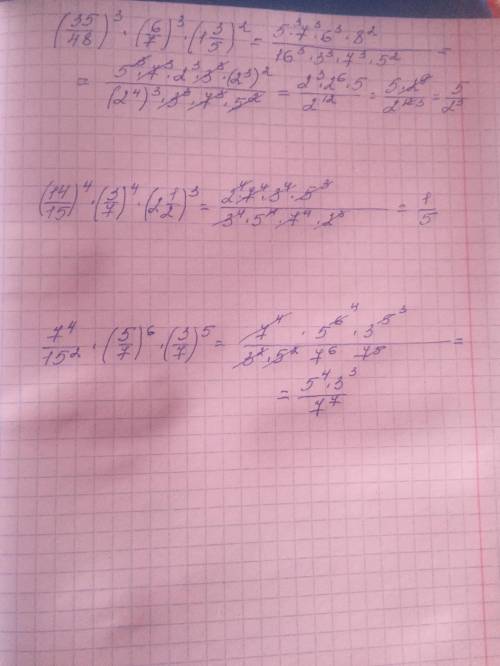 (35/48)³ · (6/7)³ · (1 3/5)² = 5³·7³·6³·8² / 16³·3³·7³·5² =
= 5³·7³·2³·3³·(2³)² / (2⁴)³·3³·7³·5² = 2³·2⁶·5 / 2¹² = 5·2⁹ / 2¹² ³ = 5/2³
(14/15)⁴ · (3/7)⁴ · (2 1/2)³ = 2⁴·7⁴·3⁴·5³ / 3⁴·5⁴·7⁴·2³ = 1/5
7⁴/15² · (5/7)⁶ · (3/7)⁵ = 7⁴ · 5⁶ ⁴ · 3⁵ ³ / 3²·5² 7⁶ 7⁵ =
= 5⁴·3³ / 7⁷